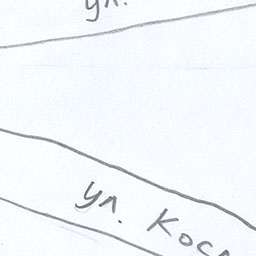 ул.
ул. Косм